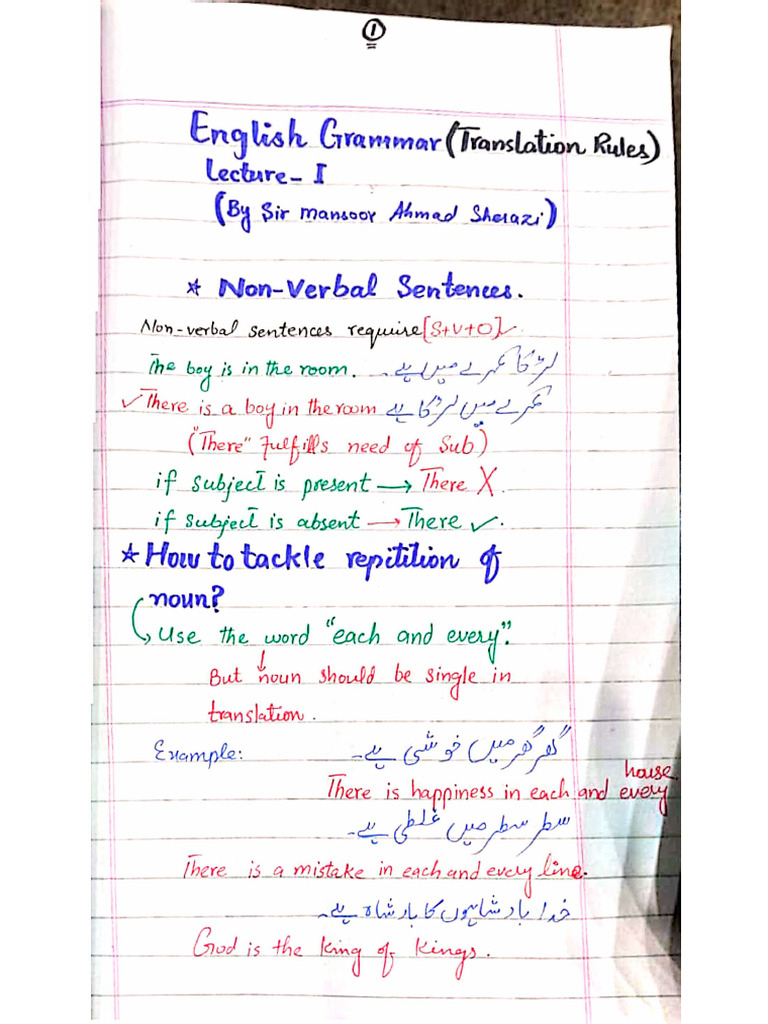 1
English Grammar (Translation Rules)
Lecture - I
(By Sir mansoor Ahmad Sherazi)
* Non-Verbal Sentences.
Non-verbal sentences require [S+V+O] ✓
The boy is in the room. لڑکا کمرے میں ہے۔
✓ There is a boy in the room کمرے میں لڑکا ہے
("There" fulfills need of Sub)
if subject is present → There X.
if subject is absent → There ✓.
* How to tackle repitition of
noun?
↳ Use the word "each and every".
↓
But noun should be single in
translation.
Example: گھر گھر میں خوشی ہے۔
house
There is happiness in each and every
سطر سطر میں غلطی ہے۔
There is a mistake in each and every line.
خدا بادشاہوں کا بادشاہ ہے۔
God is the king of kings.